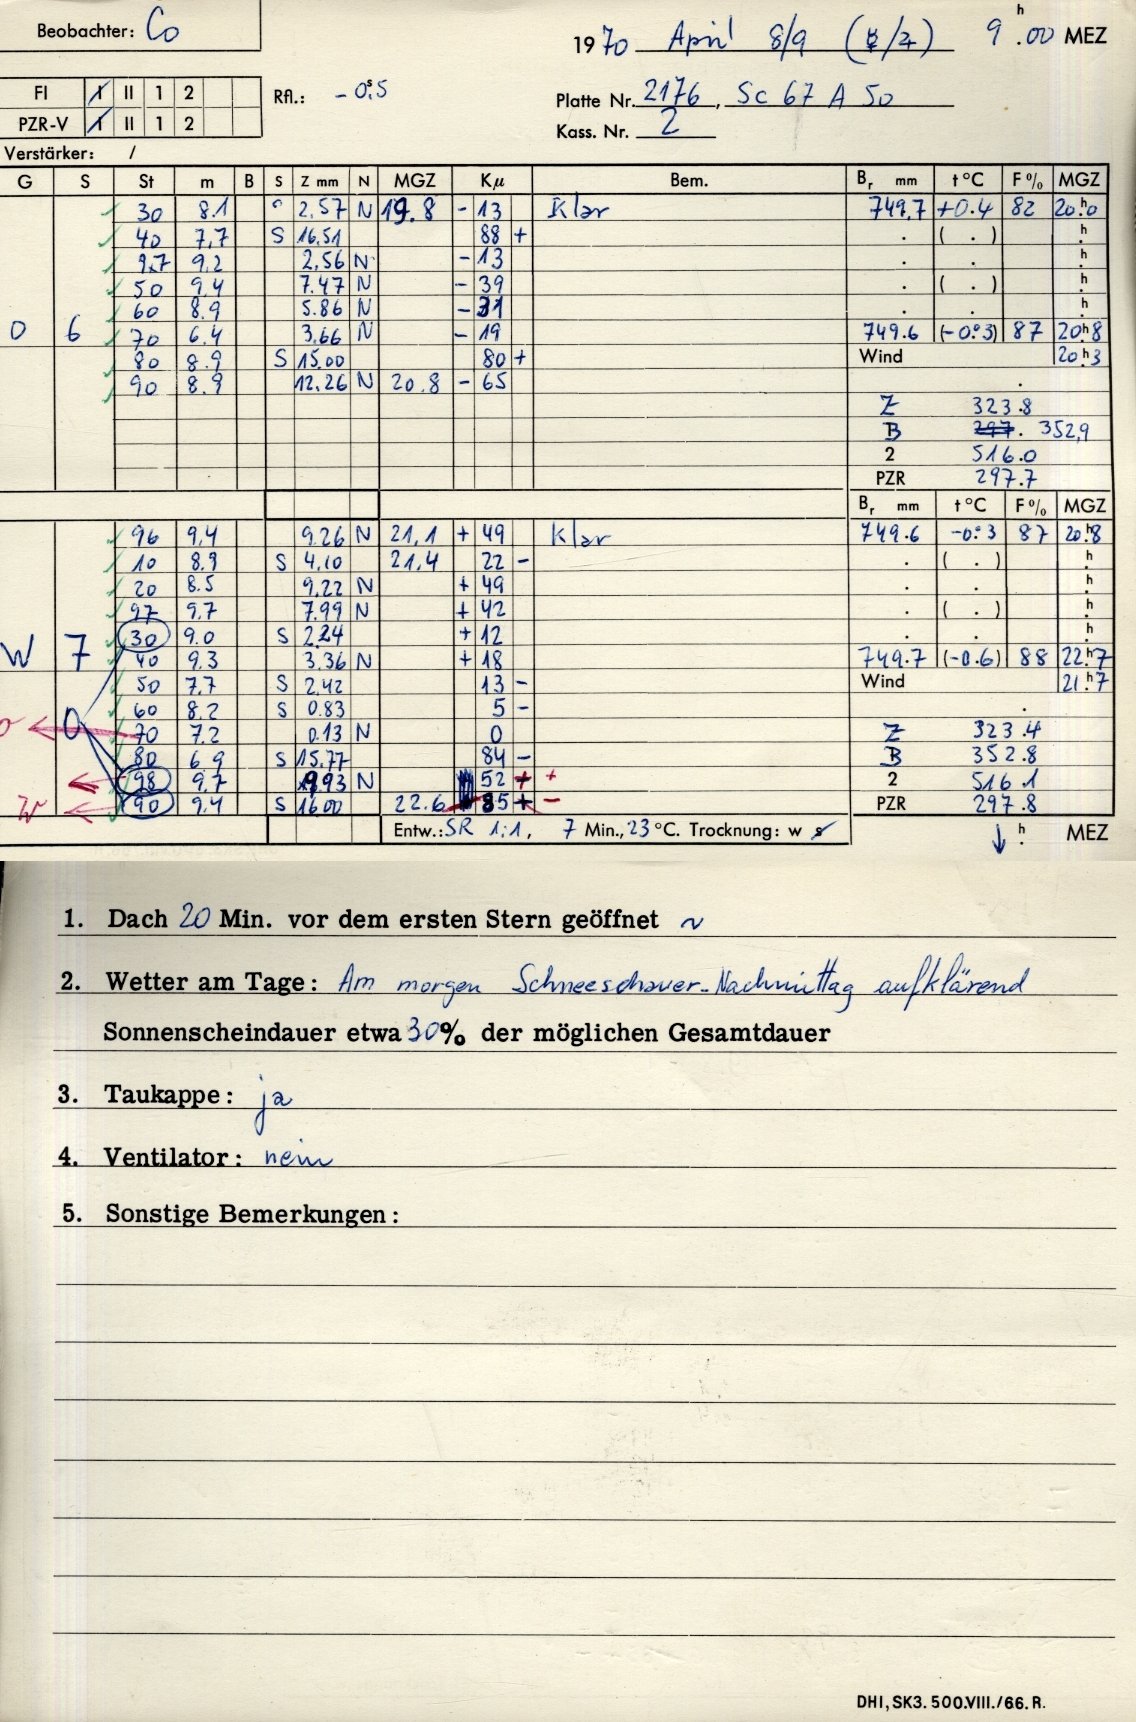 Beobachter: Co
1970 April 8/9 (☿/♃) 9h.00 MEZ
FI I II 1 2 Rfl.: - 0s.5
Platte Nr. 2176, Sc 67 A 50
PZR-V I II 1 2
Kass. Nr. 2
Verstärker: /
G S St m B S Z mm N MGZ Kμ Bem. Br mm t°C F% MGZ
30 8.1 2.57 N 19.8 - 13 Klar 749,7 +0.4 82 20h.0
40 7,7 S 16.51 88 + . ( . ) h.
97 9,2 2,56 N - 13 . . h.
50 9,4 7.47 N - 39 . ( . ) h.
60 8.9 5.86 N - 31 . . h.
O 6 70 6,4 3,66 N - 19 749.6 (-0°.3) 87 20h8
80 8.9 S 15.00 80 + Wind 20h.3
90 8.9 12.26 N 20.8 - 65 .
Z 323.8
B 297. 352,9
2 516.0
PZR 297.7
Br mm t°C F% MGZ
96 9,4 9.26 N 21,1 + 49 Klar 749.6 -0°.3 87 20h.8
10 8.9 S 4,10 21,4 22 - . ( . ) h.
20 8.5 9,22 N + 49 . . h.
97 9,7 7.99 N + 42 . ( . ) h.
30 9.0 S 2.24 + 12 . . h.
W 7 40 9.3 3.36 N + 18 749.7 (-0.6) 88 22h.7
50 7,7 S 2,42 13 - Wind 21h.7
60 8.2 S 0.83 5 - .
o O 70 7.2 0.13 N 0 Z 323.4
80 6,9 S 15.77 84 - B 352.8
98 9,7 9,93 N 52 + + 2 516.1
W 90 9,4 S 16.00 22.6 85 + - PZR 297.8
Entw.: SR 1:1, 7 Min., 23°C. Trocknung: w s ↓ h. MEZ
1. Dach 20 Min. vor dem ersten Stern geöffnet ~
2. Wetter am Tage: Am morgen Schneeschauer - Nachmittag aufklärend
Sonnenscheindauer etwa 30% der möglichen Gesamtdauer
3. Taukappe: ja
4. Ventilator: nein
5. Sonstige Bemerkungen:
DHI, SK3. 500.VIII./66.R.